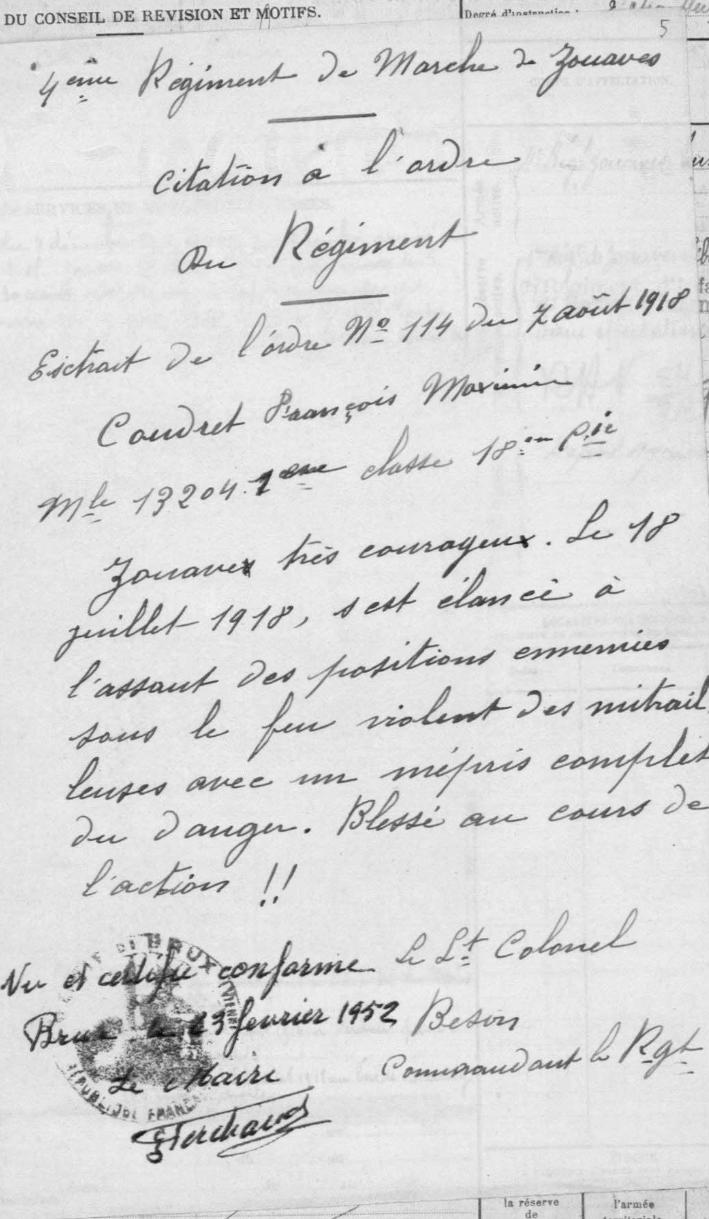 DU CONSEIL DE REVISION ET MOTIFS.
Degré d'instruction :
5
4ème Régiment de Marche de Zouaves
Citation à l'ordre
Du Régiment
Extrait de l'ordre No 114 du 7 août 1918
Coudret François Maximin
Mle 13204 1ère classe 18em Cie
Zouaves très courageux. Le 18
juillet 1918, s'est élancé à
l'assaut des positions ennemies
sous le feu violent des mitrail
leuses avec un mépris complet
du danger. Blessé au cours de
l'action !!
Vu et certifié conforme
Le Lt Colonel
Brux le 23 février 1952
Besson
Le Maire
Commandant le Rgt
RÉPUBLIQUE FRANÇAISE
la réserve
de
l'armée
territoriale